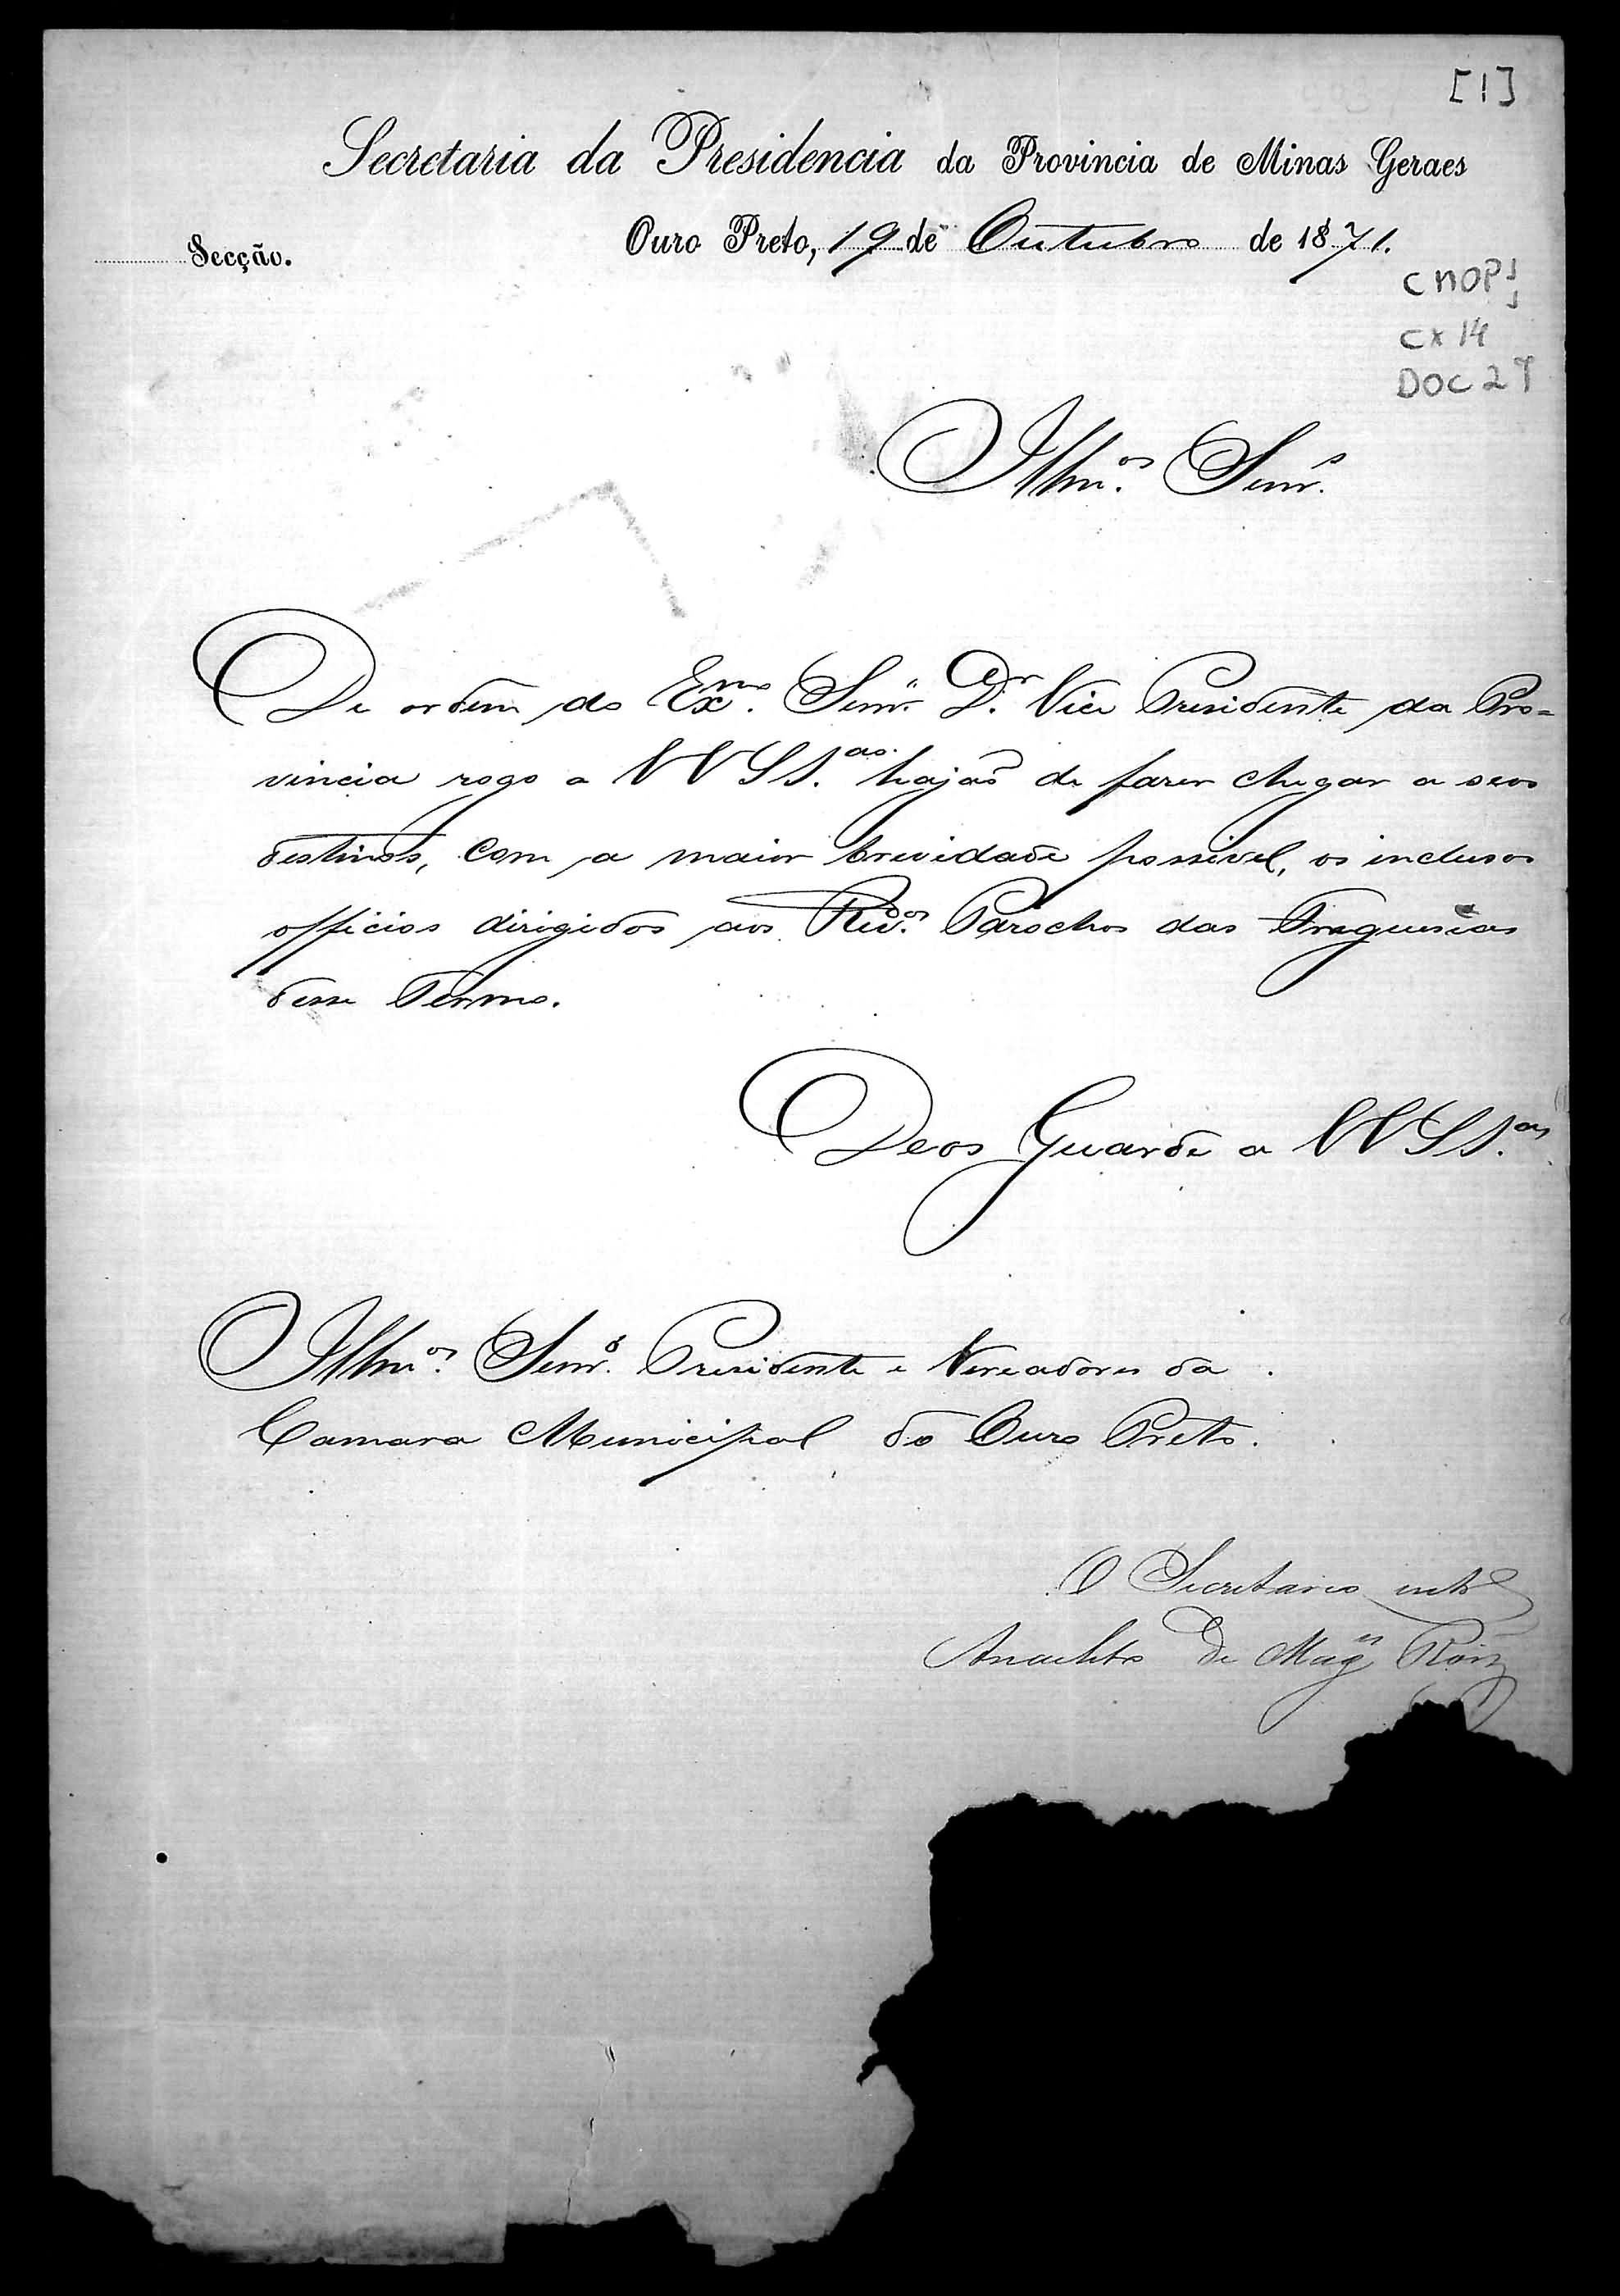 [1]
Secretaria da Presidencia da Provincia de Minas Geraes
Ouro Preto, 19 de Outubro de 1871.
Secção.
CMOP
CX 14
DOC 27
Illmos. Senrs.
De ordem do Exmo. Senr. Dr. Vice Presidente da Pro=
vincia rogo a VVSSas. hajão de fazer chegar a seos
destinos, com a maior brevidade possivel, os inclusos
officios dirigidos aos Revdos. Parochos das Freguesias
desse Termo.
Deos Guarde a VVSSas.
Illmos. Senrs. Presidente e Vereadores da
Camara Municipal do Ouro Preto.
O Secretario
de Mages